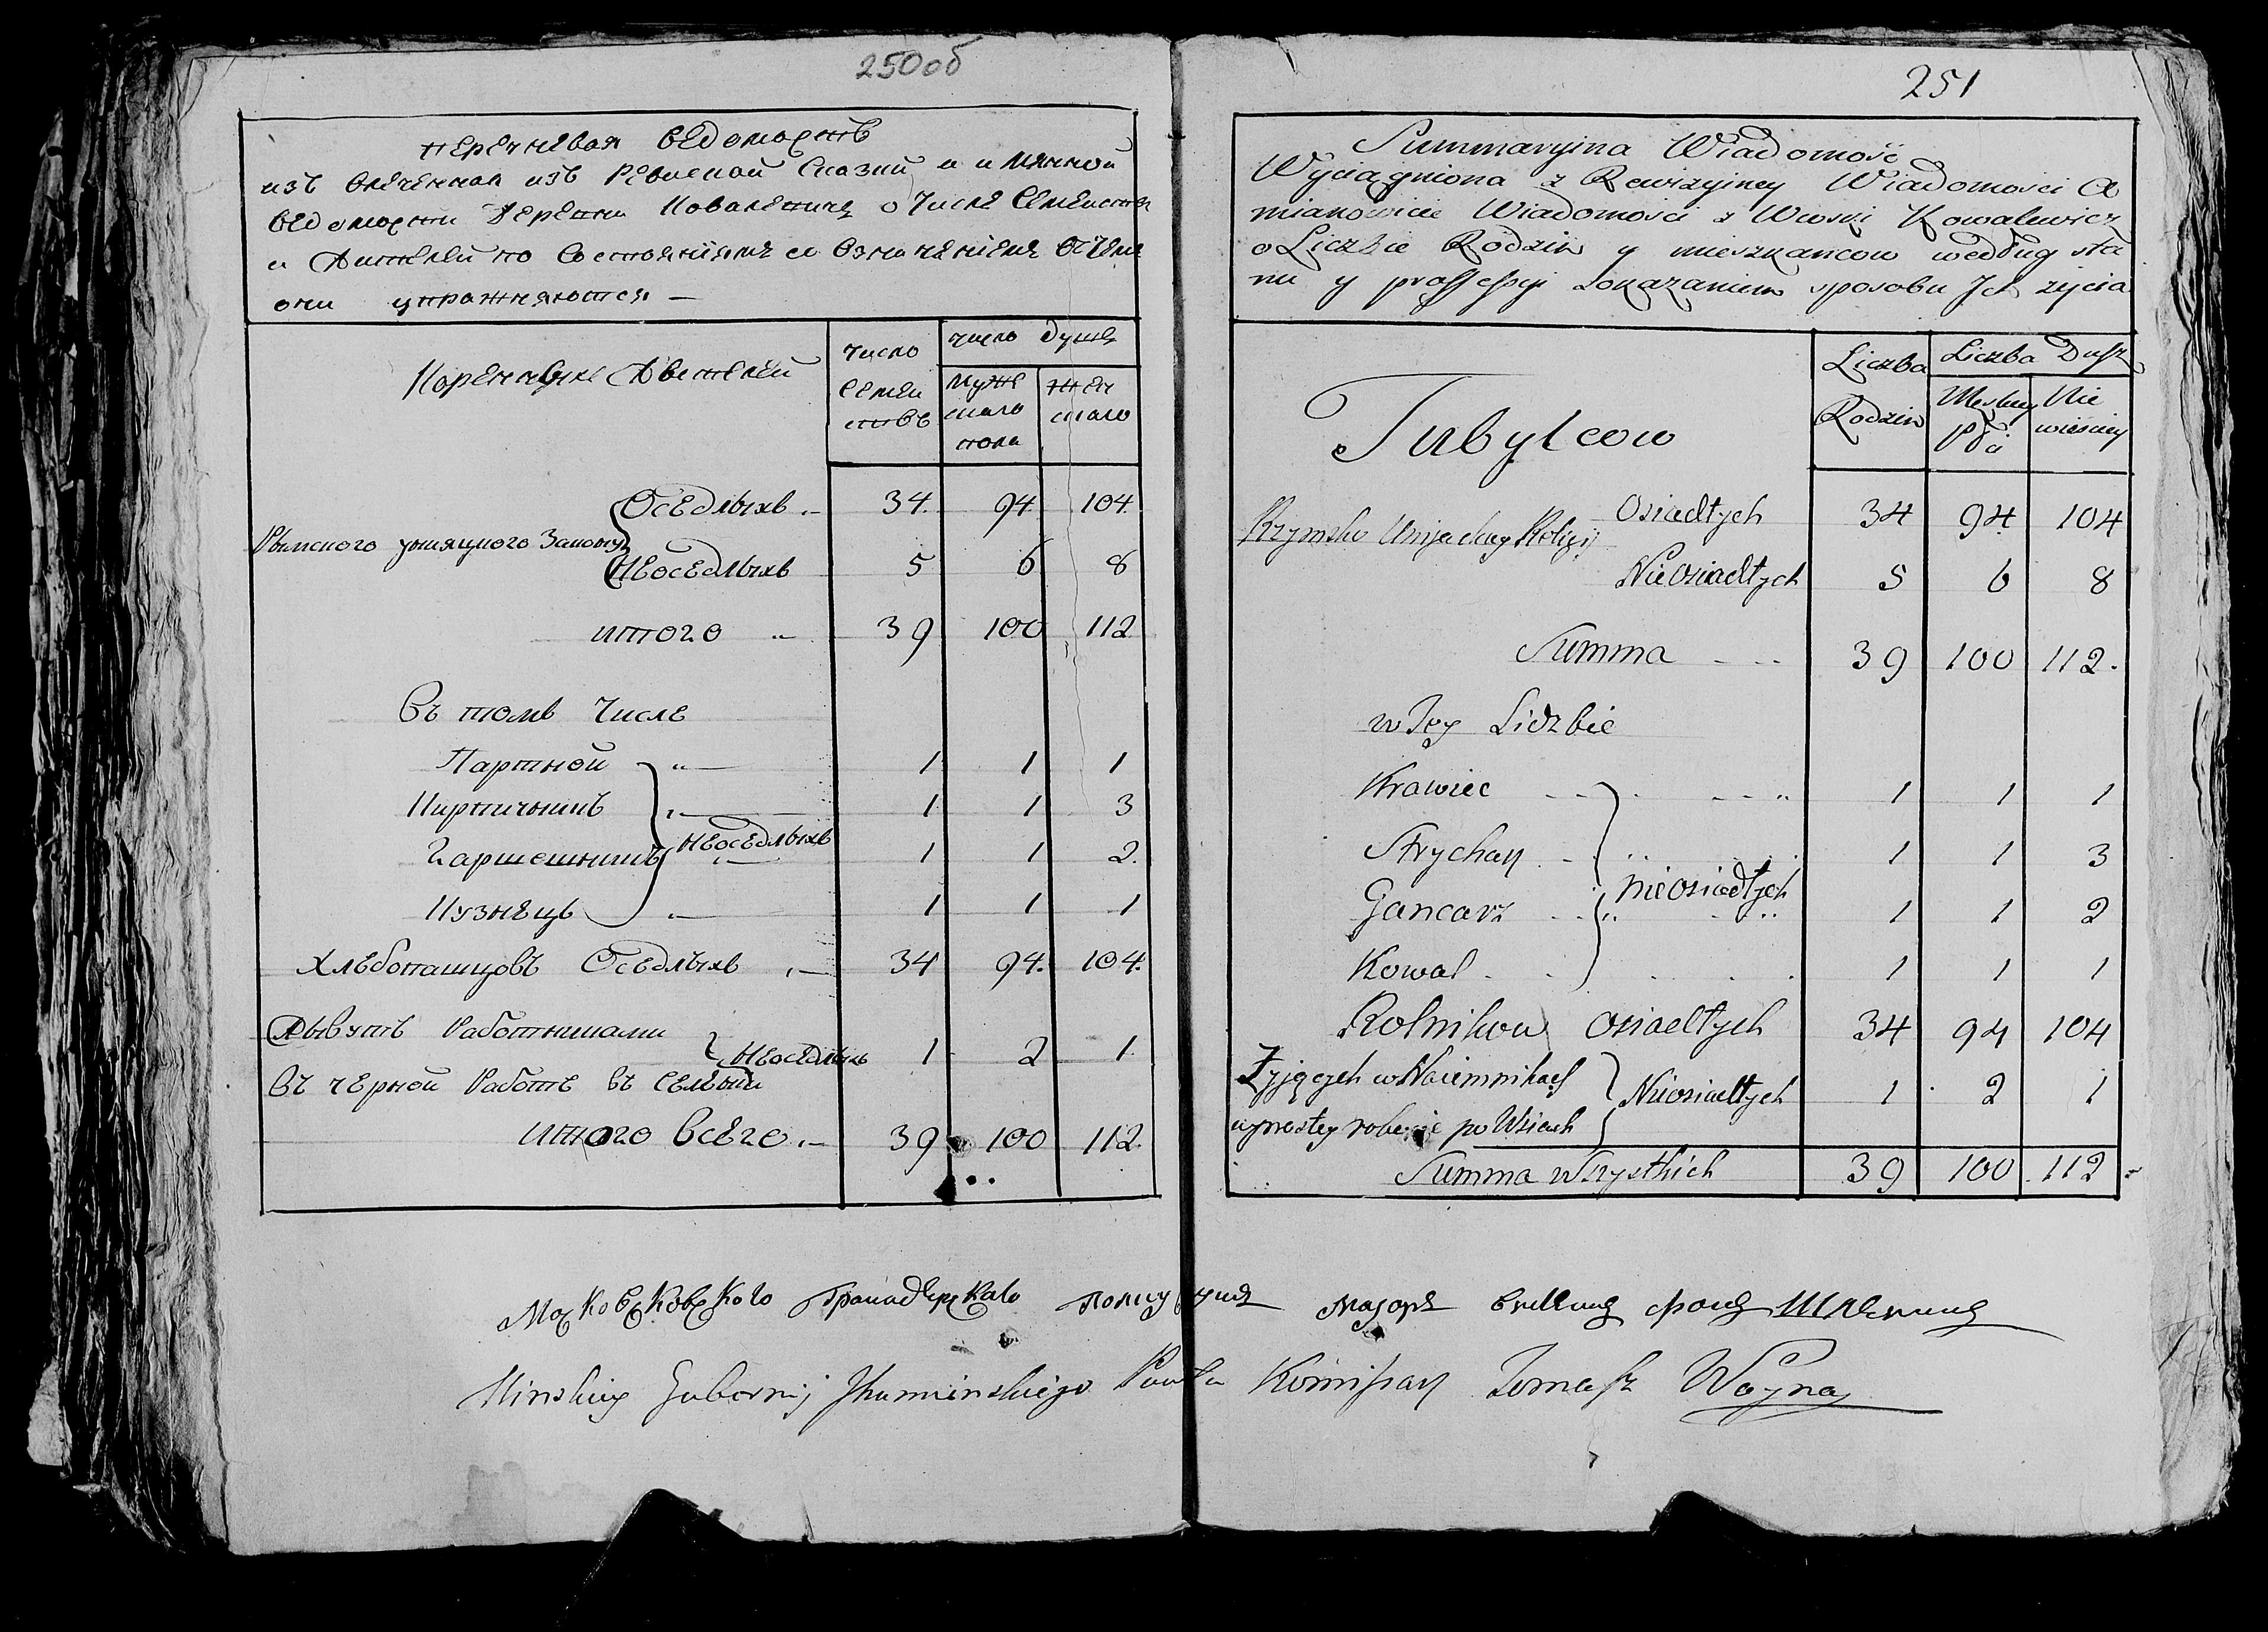 250об
перечневая ведомость
изъ влеченная изъ Ревиской Сказки и имянной
ведомости деревни Ковалевичъ о Числе Семействъ
и Жителей по Состояніямъ со Означеніемъ Въ чемъ
они упражняются —
Коренныхъ Жителей
число семействъ
число душъ
мужескаго пола
женскаго
Римского униятцкого Закону
Оседлыхъ 34 94 104
Неоседлыхъ 5 6 8
итого 39 100 112
Въ томъ Числе
Партной 1 1 1
Кирпичникъ 1 1 3
Гаршешникъ 1 1 2
Неоседлыхъ
Кузнецъ 1 1 1
Хлебопашцовъ Оседлыхъ 34 94 104
Живутъ Работниками
Неоседлыхъ 1 2 1
въ черной Работе въ Селении
итого всего 39 100 112
251
Summaryina Wiadomość
Wyciągniona z Rewizyiney Wiadomości A
mianowicie Wiadomości z Wioski Kowalewicz
o Liczbie Rodzin y mieszkancow według sta
nu y proffessyi z okazaniem sposobu Ich życia
Tubylcow
Liczba Rodzin
Liczba Dusz
Męskiey Płci
Niewieściey
Rzymsko Uniiackiey Religii
Osiadłych 34 94 104
Nieosiadłych 5 6 8
Summa 39 100 112
w Tey Liczbie
Krawiec 1 1 1
Strycharz 1 1 3
nieosiadłych
Gancarz 1 1 2
Kowal 1 1 1
Rolnikow osiadłych 34 94 104
Zyjęcych w Naiemnikach
Nieosiadłych 1 2 1
w prostey robocie po Wsiach
Summa wszystkich 39 100 112
Московсковского Гранадерскаго полку маjоръ фонъ
Minskiey Gubernij Jhumińskiego Powiatu Komissarz Tomasz Woyna